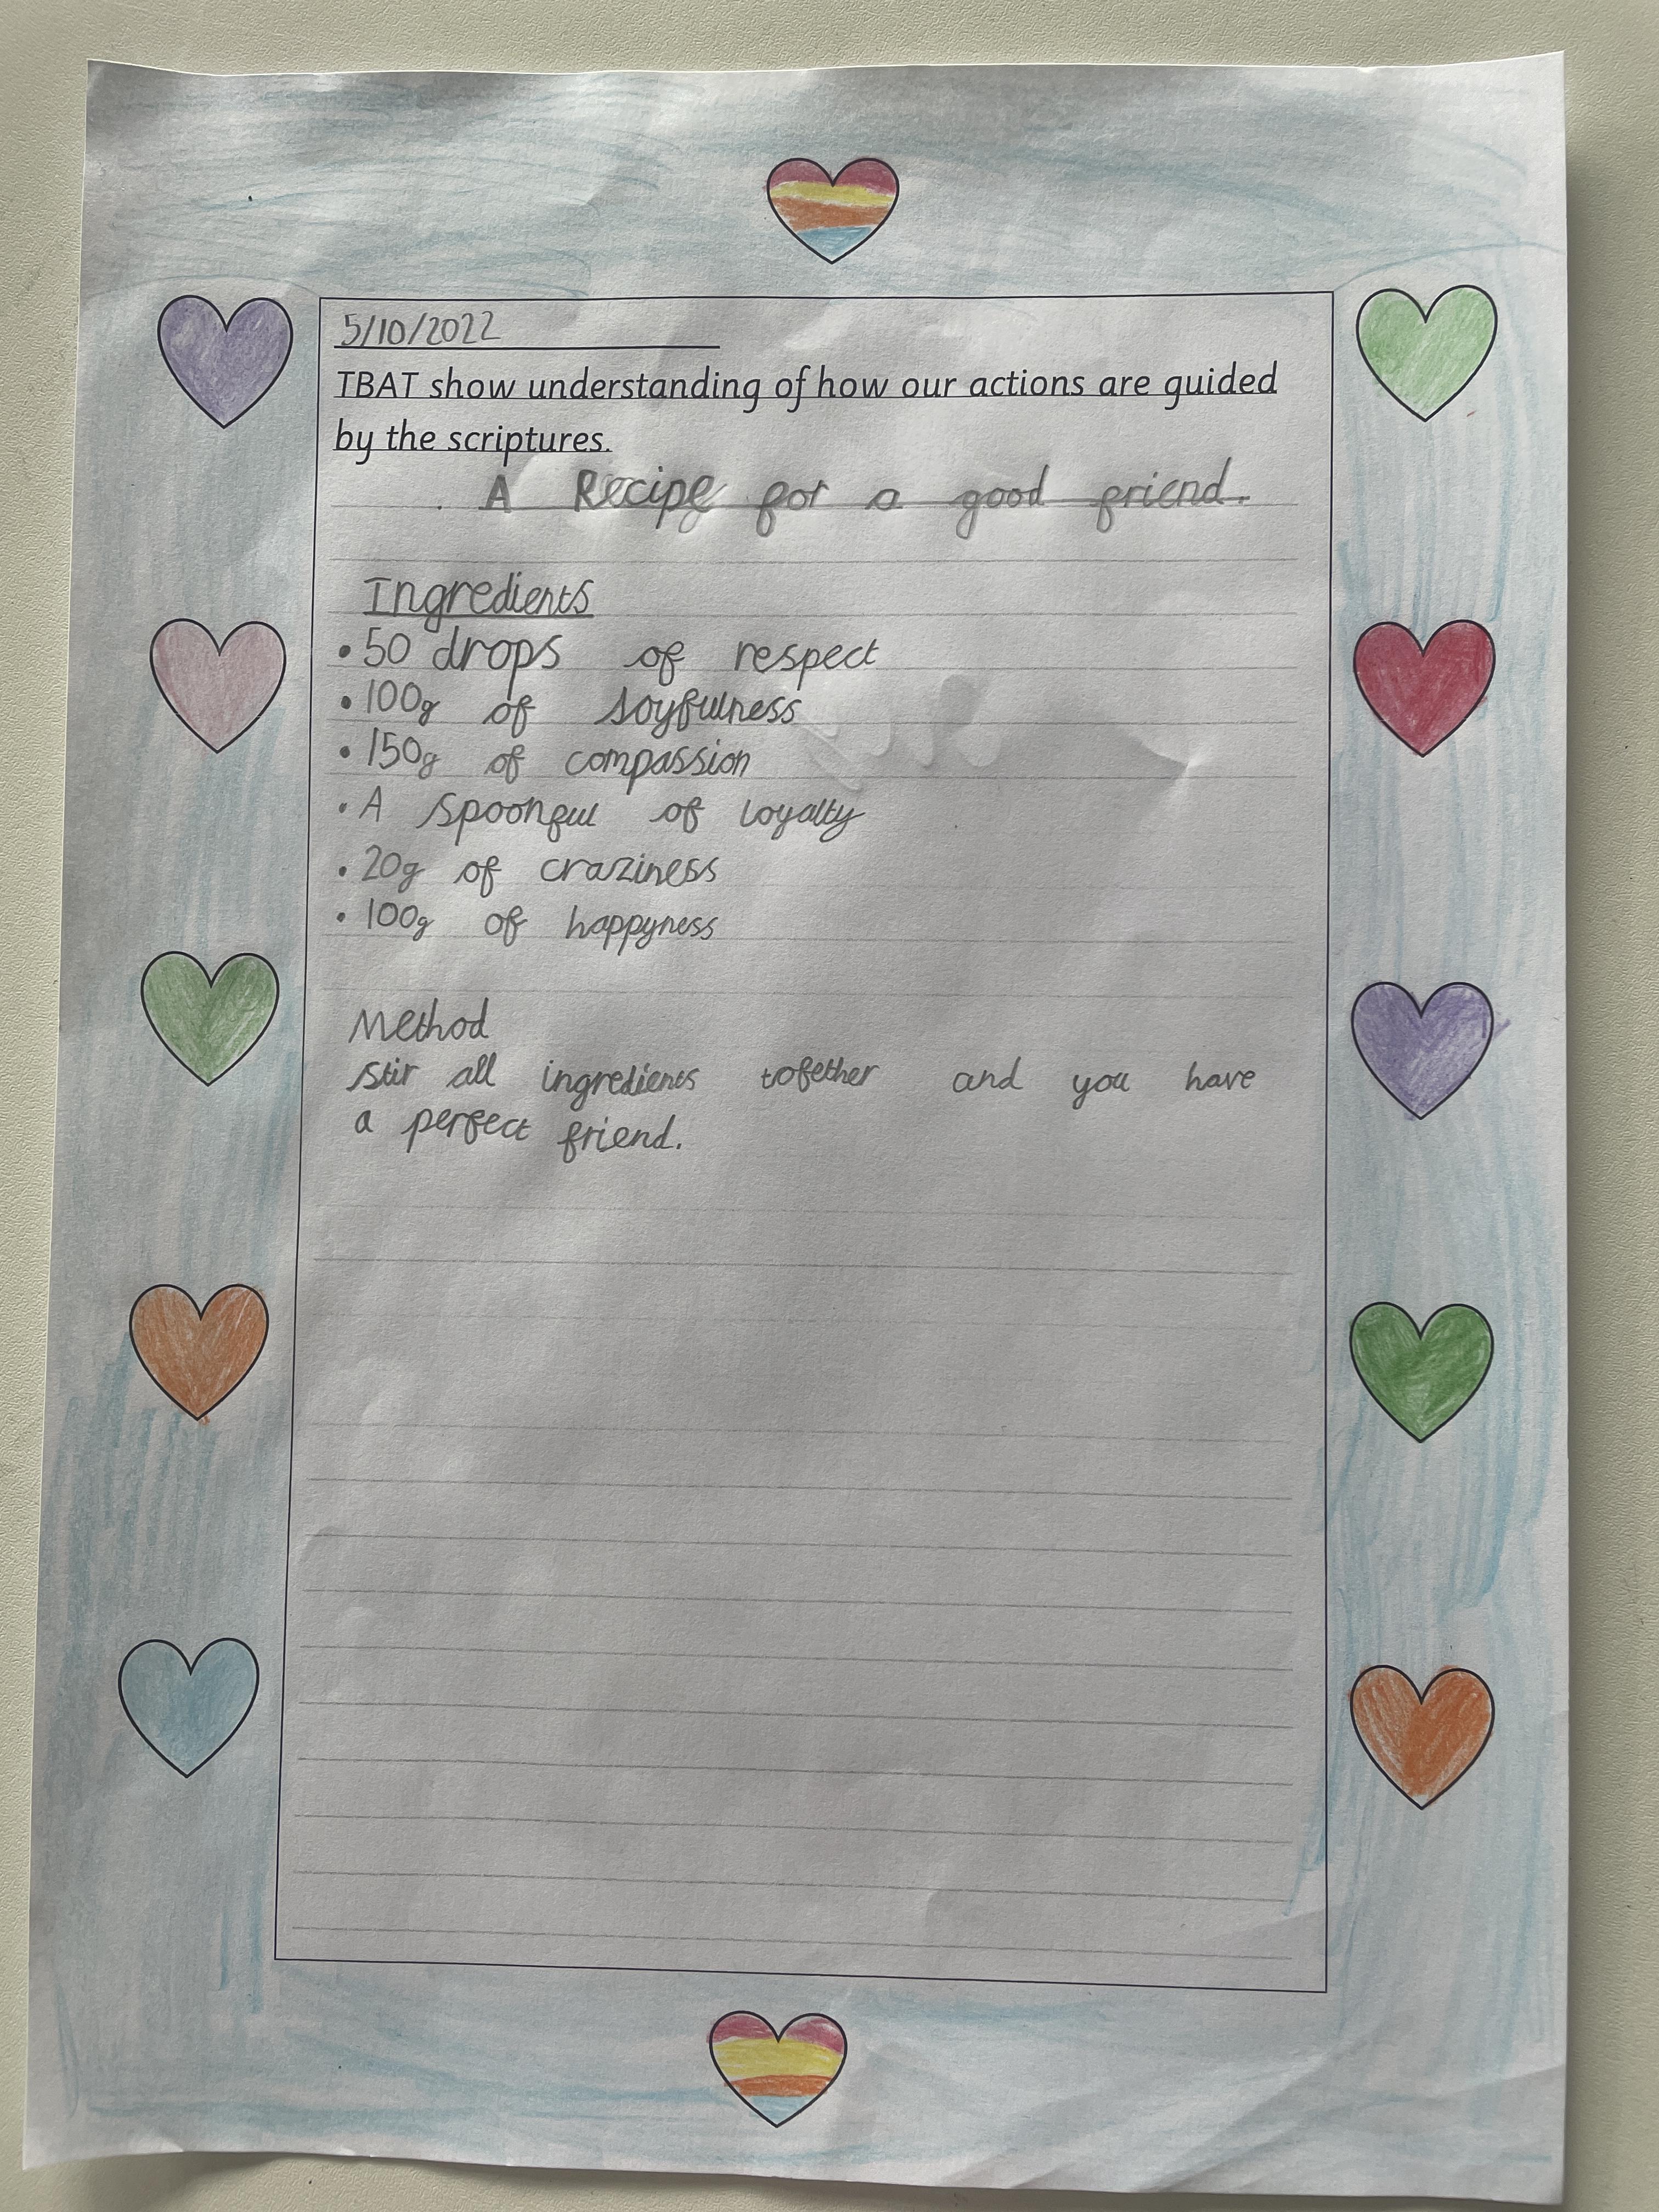 5/10/2022
TBAT show understanding of how our actions are guided
by the scriptures.
A Recipe for a good friend.
Ingredients
• 50 drops of respect
• 100g of Joyfulness
• 150g of compassion
• A spoonful of loyalty
• 20g of craziness
• 100g of happyness
Method
Stir all ingredients together and you have
a perfect friend.